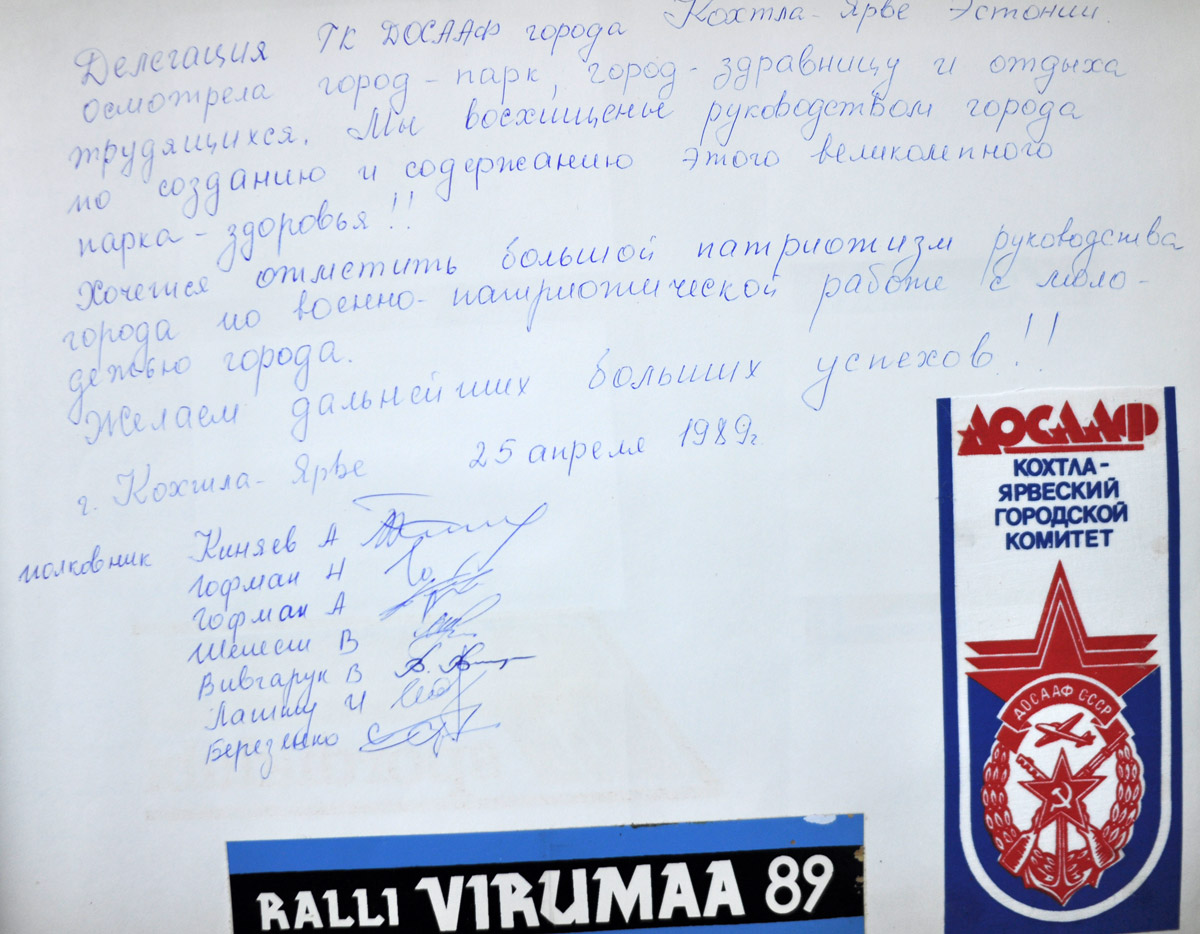 Делегация ГК ДОСААФ города Кохтла-Ярве Эстонии
осмотрела город-парк, город-здравницу и отдыха
трудящихся. Мы восхищенье руководством города
по созданию и содержанию этого великолепного
парка-здоровья!!
Хочется отметить большой патриотизм руководства
города по военно-патриотической работе с моло-
дежью города.
Желаем дальнейших больших успехов!!
г. Кохтла-Ярве 25 апреля 1989г.
полковник Киняев А
Гофман Н
Гофман А
Шелест В
Вивчарук В
И
Березенко С
ДОСААФ
КОХТЛА-
ЯРВЕСКИЙ
ГОРОДСКОЙ
КОМИТЕТ
ДОСААФ СССР
RALLI VIRUMAA 89